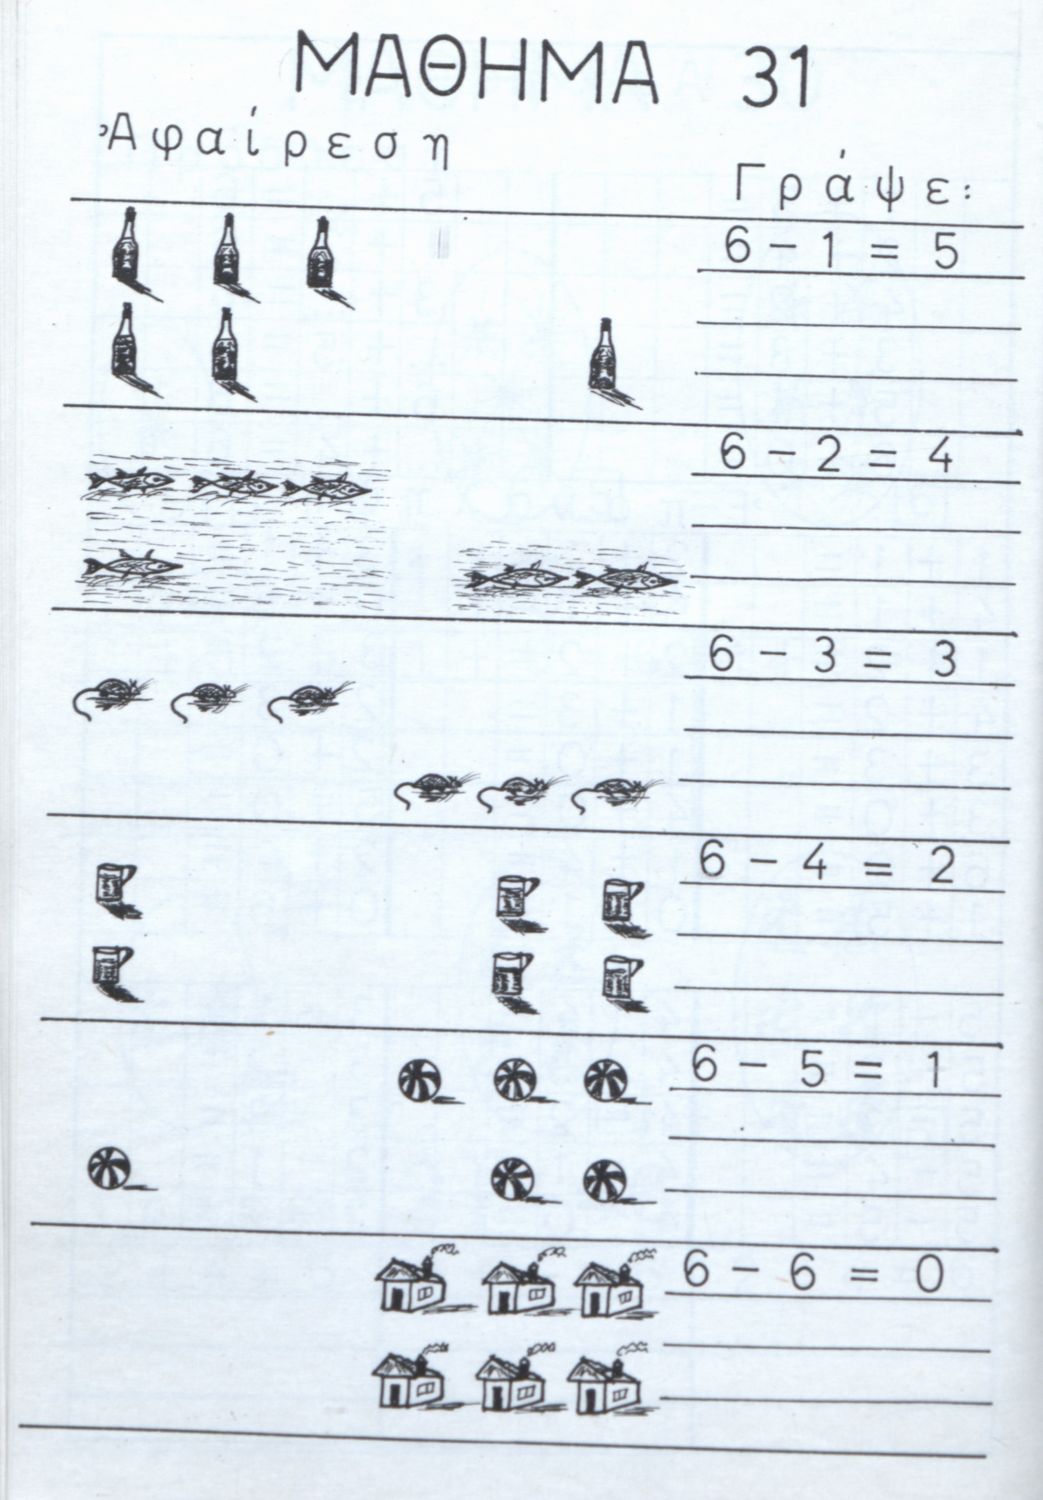 ΜΑΘΗΜΑ 31
Ἀφαίρεση
Γράψε:
6 - 1 = 5
6 - 2 = 4
6 - 3 = 3
6 - 4 = 2
6 - 5 = 1
6 - 6 = 0